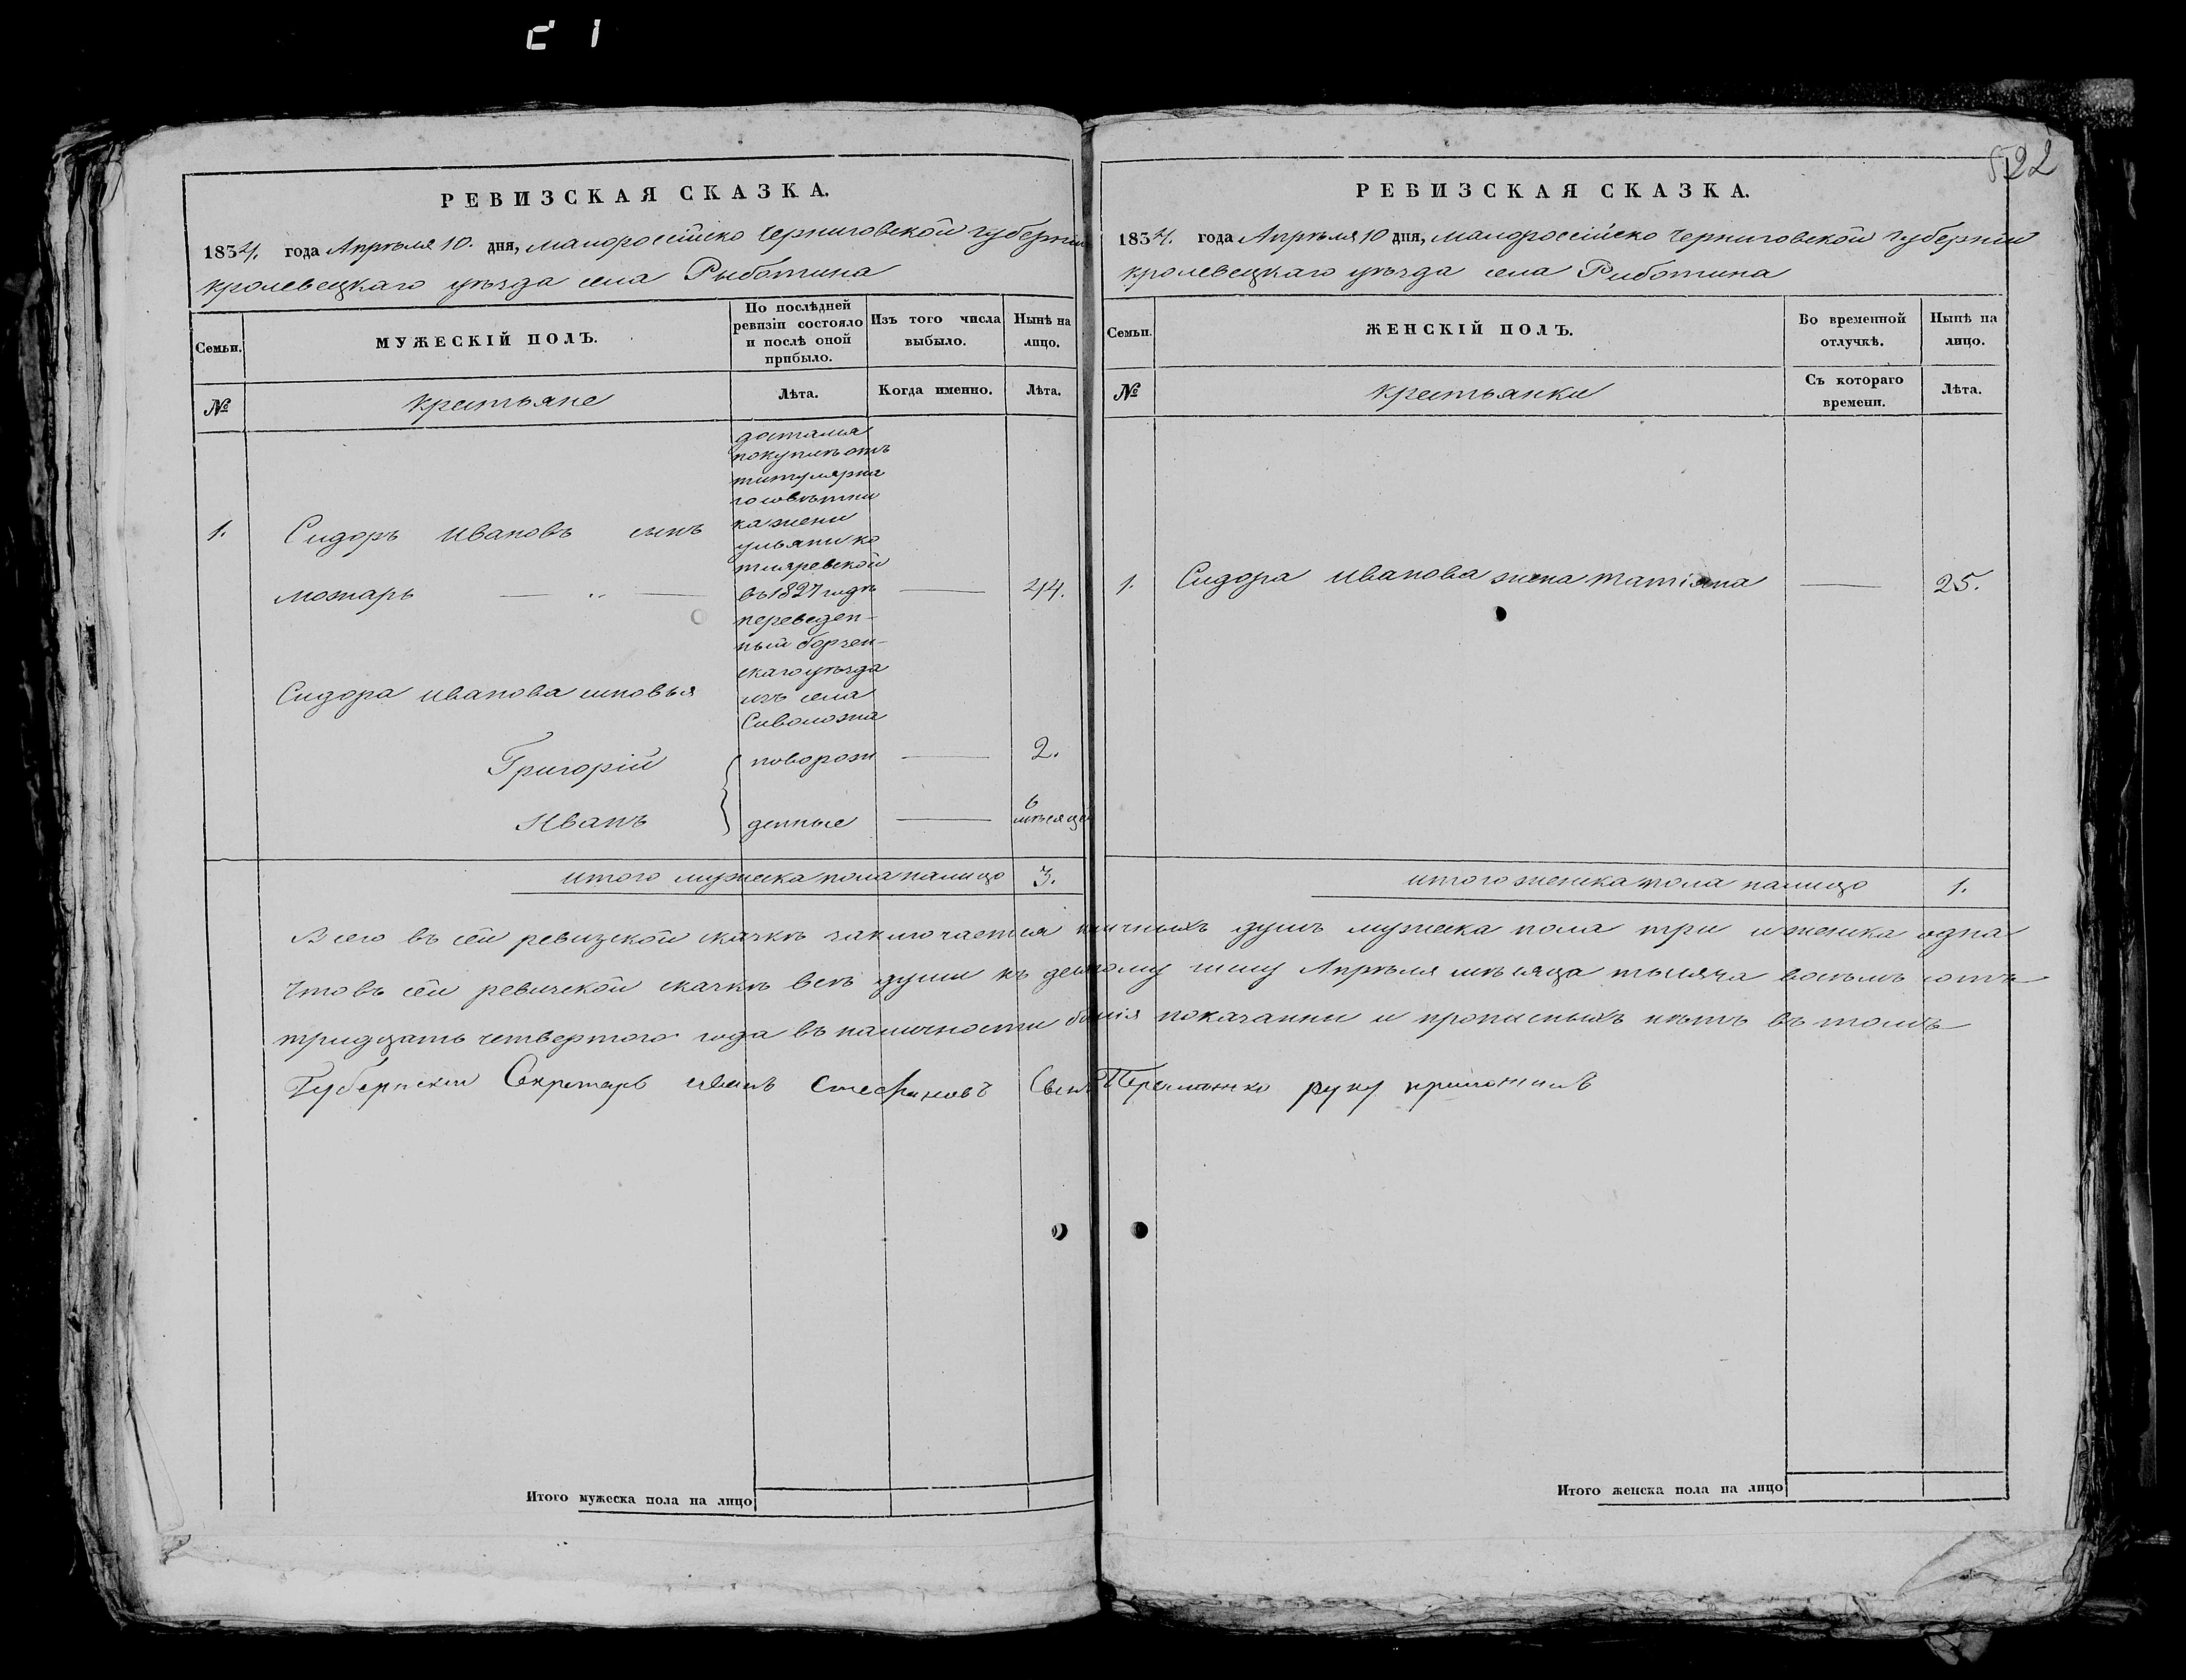 522
РЕВИЗСКАЯ СКАЗКА.
1834. года Апрѣля 10. дня, малороссійско Черниговской губерніи
кролевецкаго уѣзда села Рыботина
Семьи.
МУЖЕСКІЙ ПОЛЪ.
По послѣдней ревизіи состояло и послѣ оной прибыло.
Изъ того числа выбыло.
Нынѣ на лицо.
№
крестьяне
Лѣта.
Когда именно.
Лѣта.
досталса
покупкѣ отъ
титулярна
го совѣтни
ка жени
ульяни ко
тляревской
1. Сидоръ Ивановъ сынъ
можаръ — „ — въ 1827 годѣ — 44.
переведен-
ный борзен-
скаго уѣзда
изъ села
Сиволожа
Сидора Иванова сыновья
Григорій поворож — 2.
Иванъ денные — 6 мѣсяцей
итого мужеска пола налицо 3.
РЕВИЗСКАЯ СКАЗКА.
1834. года Апрѣля 10 дня, малороссійско Черниговской губерніи
кролевецкаго уѣзда села Риботина
Семьи.
ЖЕНСКІЙ ПОЛЪ.
Во временной отлучкѣ.
Нынѣ на лицо.
№
крестьянки
Съ котораго времени.
Лѣта.
1. Сидора Иванова жена татіяна — 25.
итого женска пола налицо 1.
Всего въ сей ревизской сказкѣ заключается личныхъ душъ мужеска пола три и женска одна
Что въ сей ревизской сказкѣ всѣ души къ десятому числу Апрѣля мѣсяца тысяча восемъ сотъ
тридцать четвертого года въ наличности бывшія показанни и прописныхъ нѣтъ въ томъ
Губернскій Секретарь иванъ Стефановъ Сынъ руку приложилъ
Итого мужеска пола на лицо
Итого женска пола на лицо